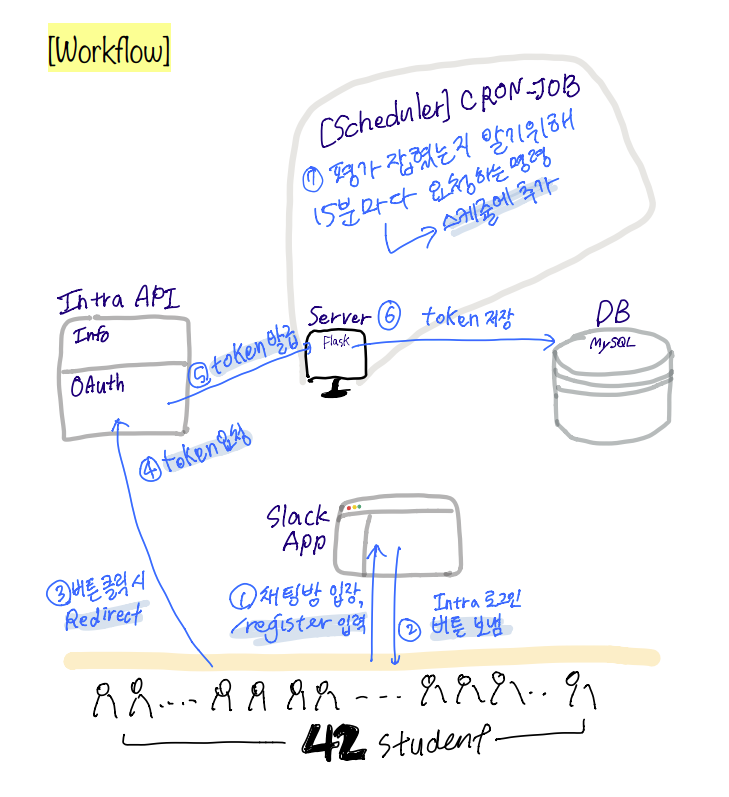 [Workflow]
[Scheduler] CRON-JOB
⑦ 평가 잡혔는지 알기위해
15분마다 요청하는 명령
스케쥴에 추가
Intra API
Info
OAuth
⑤ token 발급
Server
Flask
⑥ token 저장
DB
MySQL
④ token 요청
Slack
App
③ 버튼 클릭 시
Redirect
① 채팅방 입장,
/register 입력
② Intra 로그인
버튼 보냄
42 student